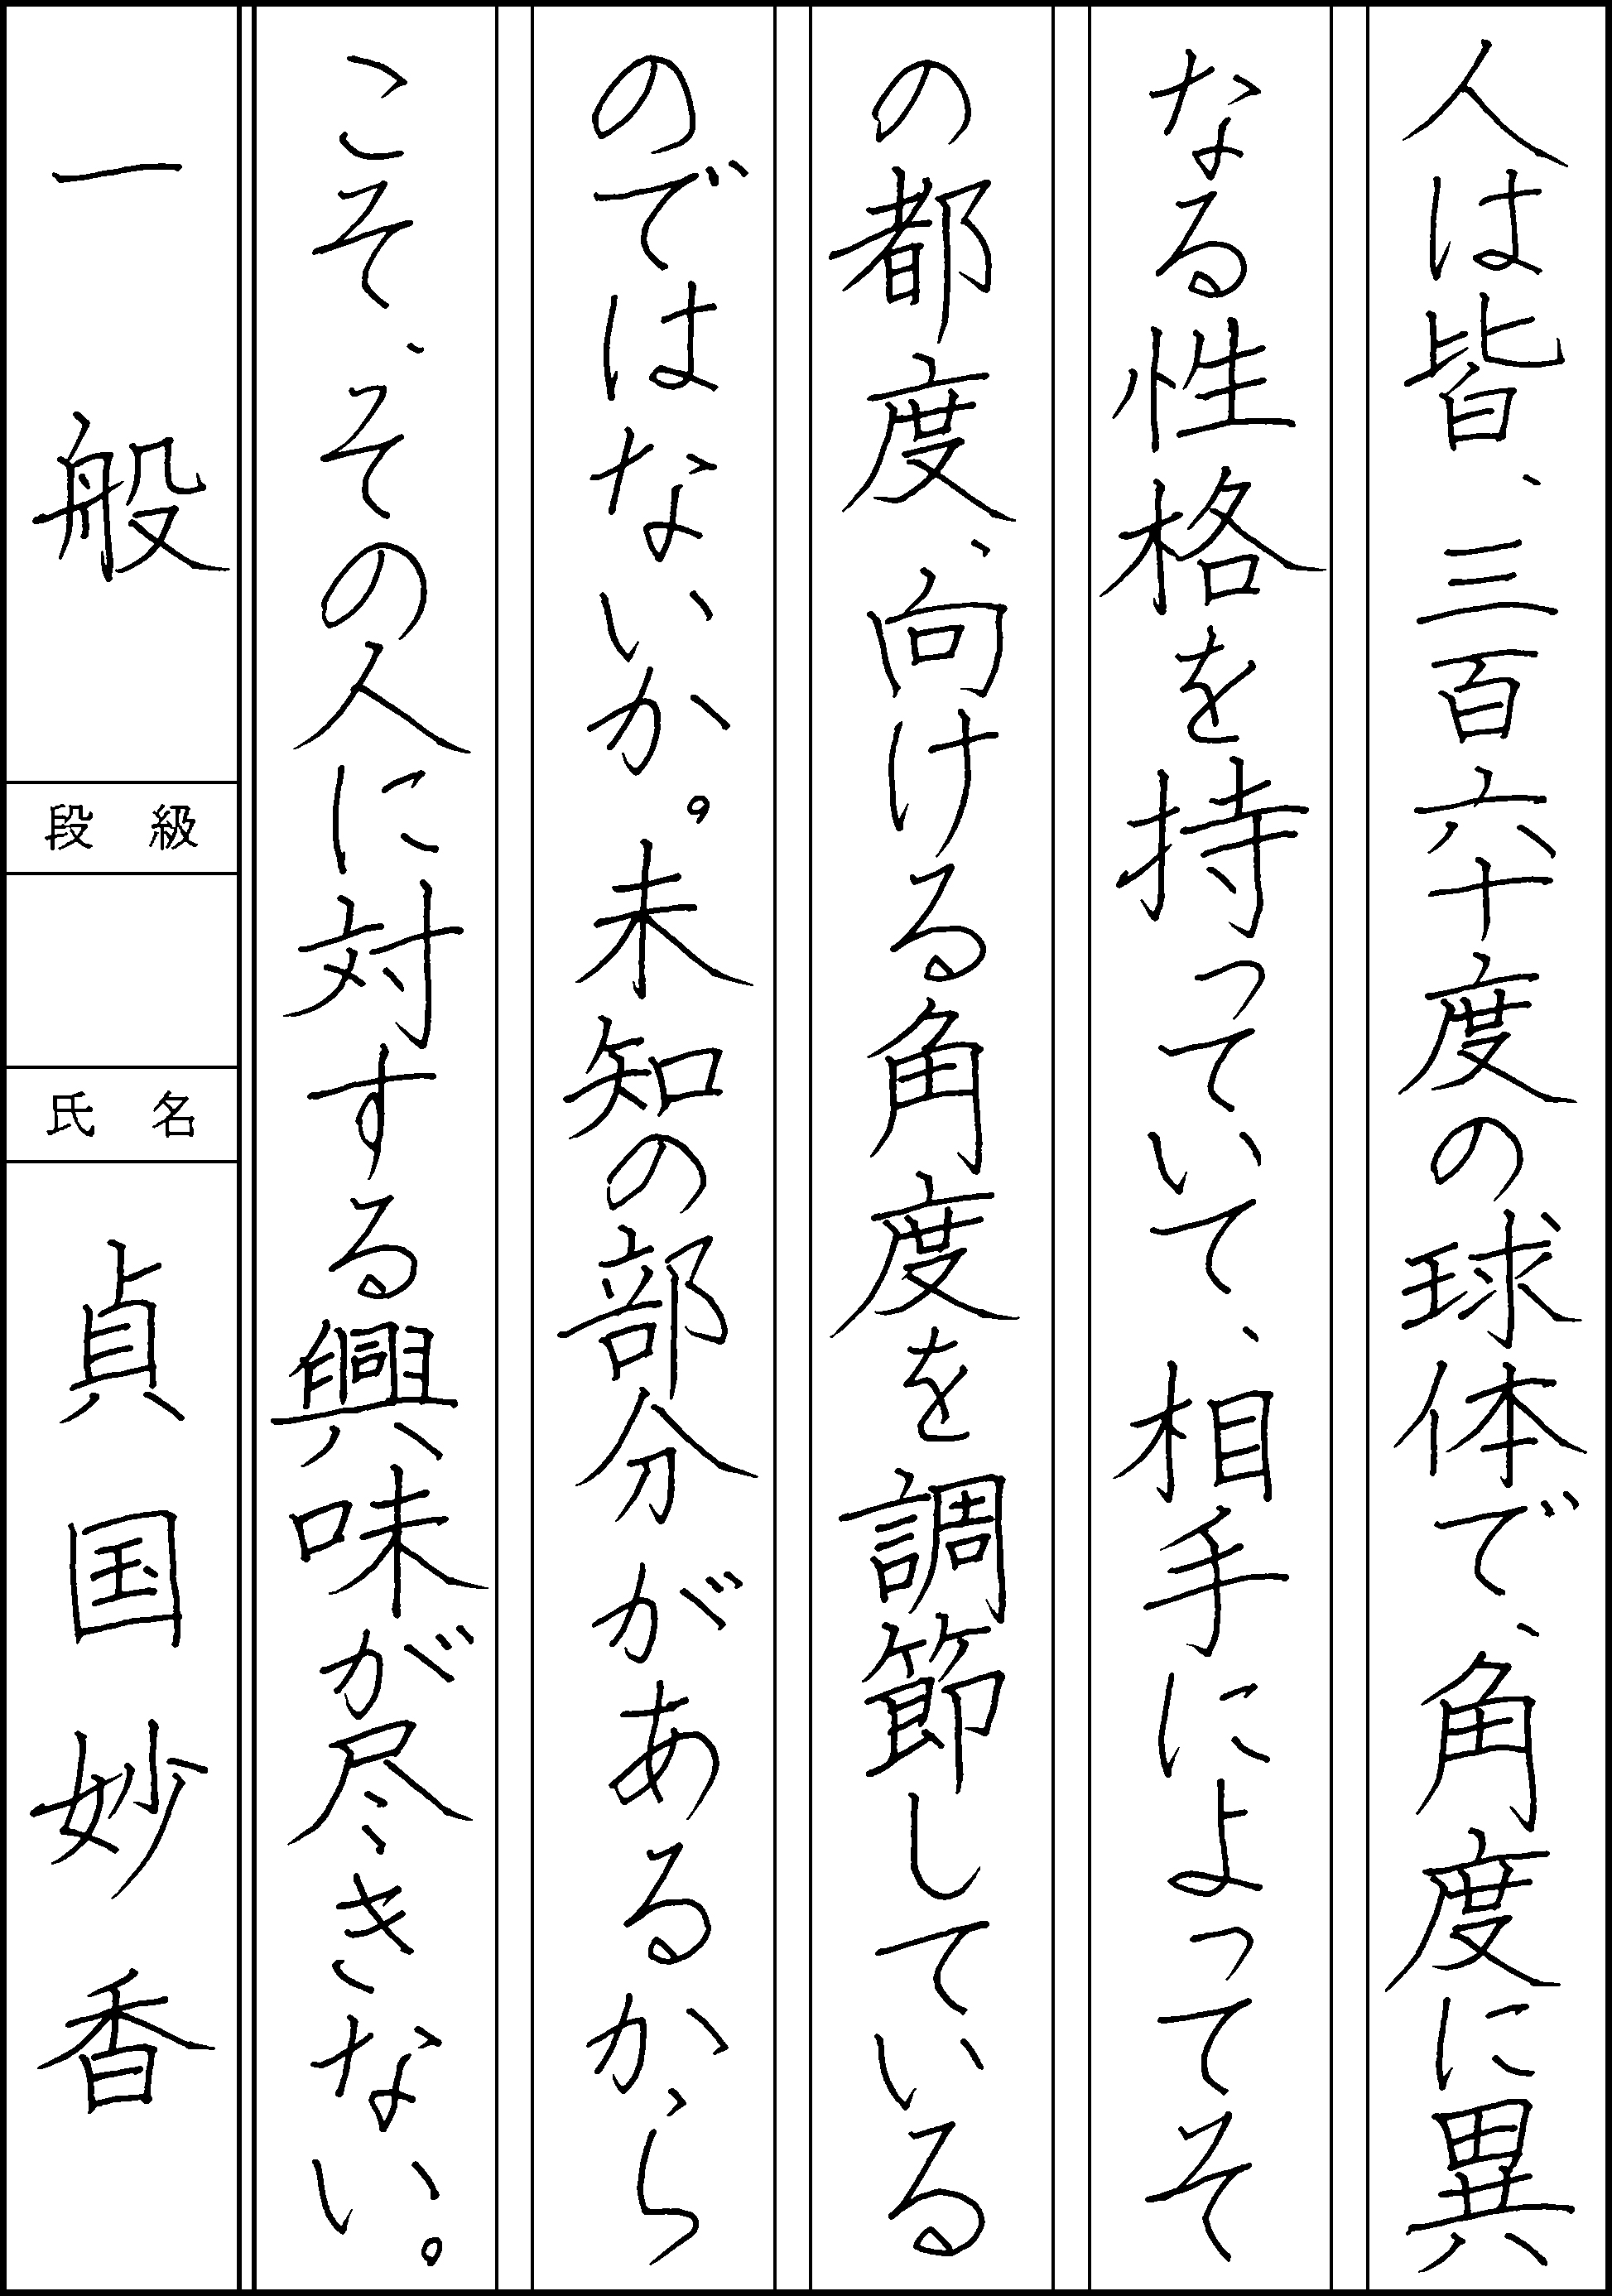 人は皆、三百六十度の球体で、角度に異
なる性格を持っていて、相手によってそ
の都度、向ける角度を調節している
のではないか。未知の部分があるから
こそ、その人に対する興味が尽きない。
一般
段級
氏名
貞国妙香